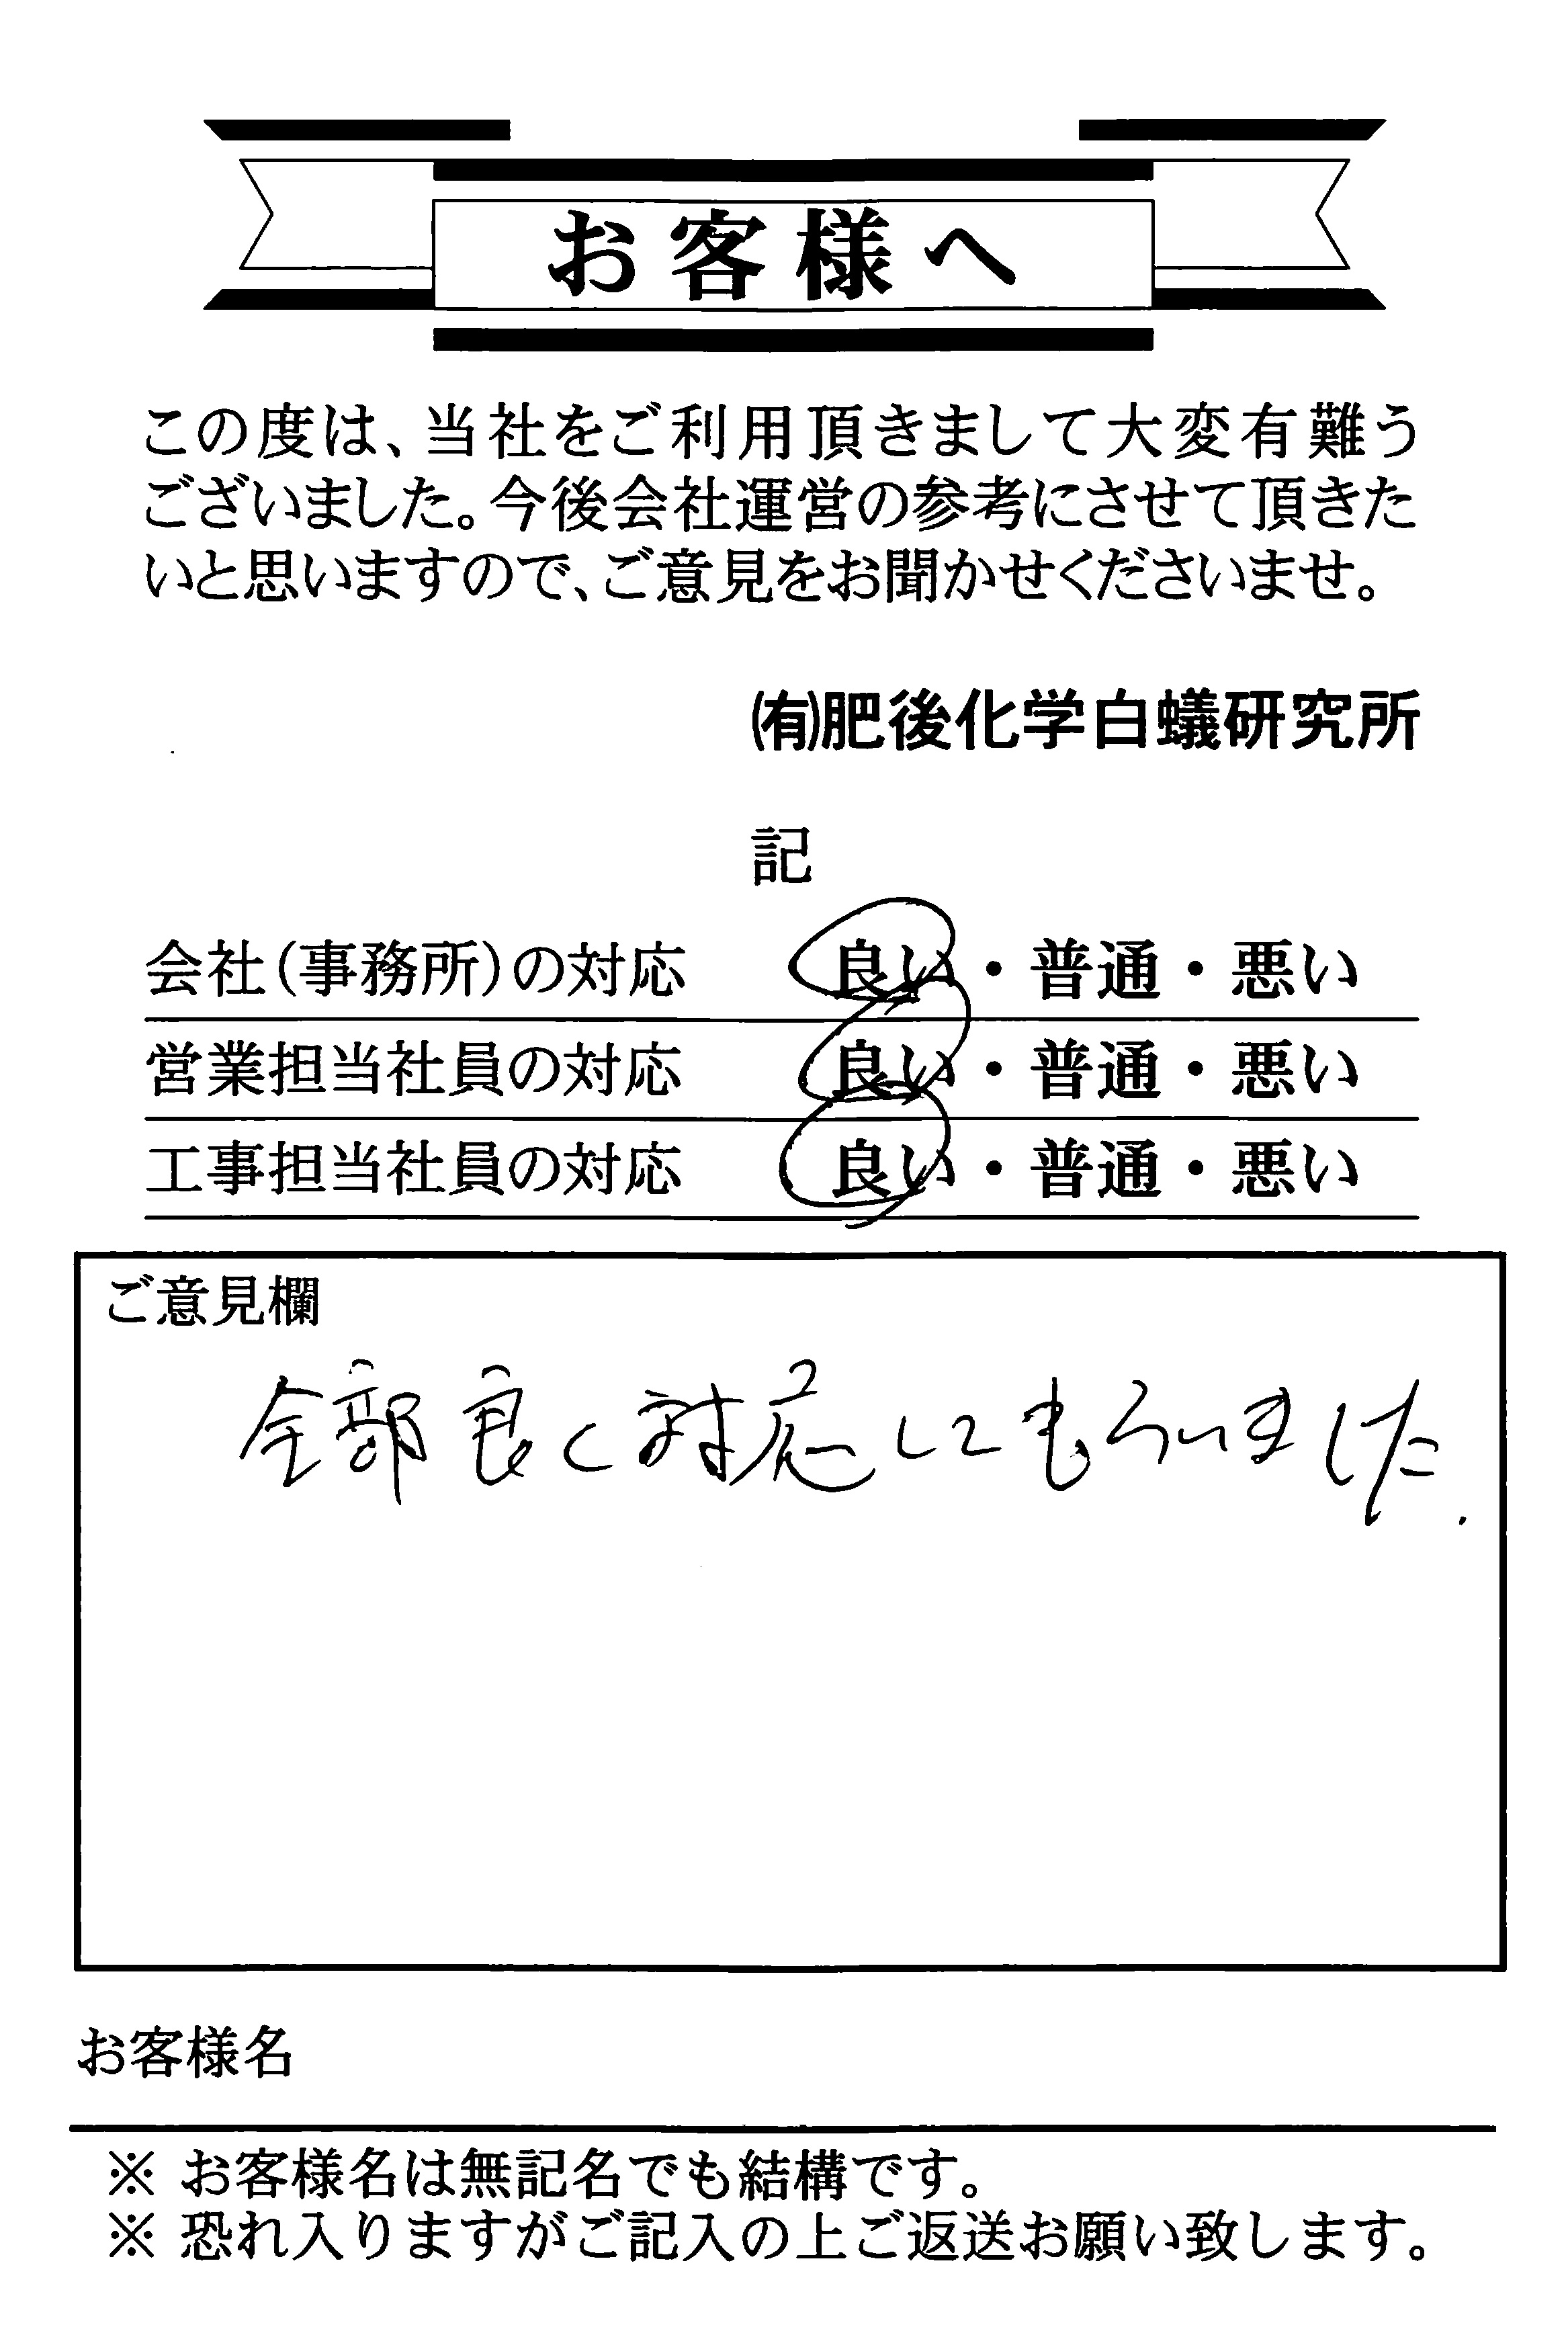 お客様へ
この度は、当社をご利用頂きまして大変有難う
ございました。今後会社運営の参考にさせて頂きた
いと思いますので、ご意見をお聞かせくださいませ。
㈲肥後化学白蟻研究所
記
会社(事務所)の対応 良い・普通・悪い
営業担当社員の対応 良い・普通・悪い
工事担当社員の対応 良い・普通・悪い
ご意見欄
全部良く対応してもらいました.
お客様名
※ お客様名は無記名でも結構です。
※ 恐れ入りますがご記入の上ご返送お願い致します。